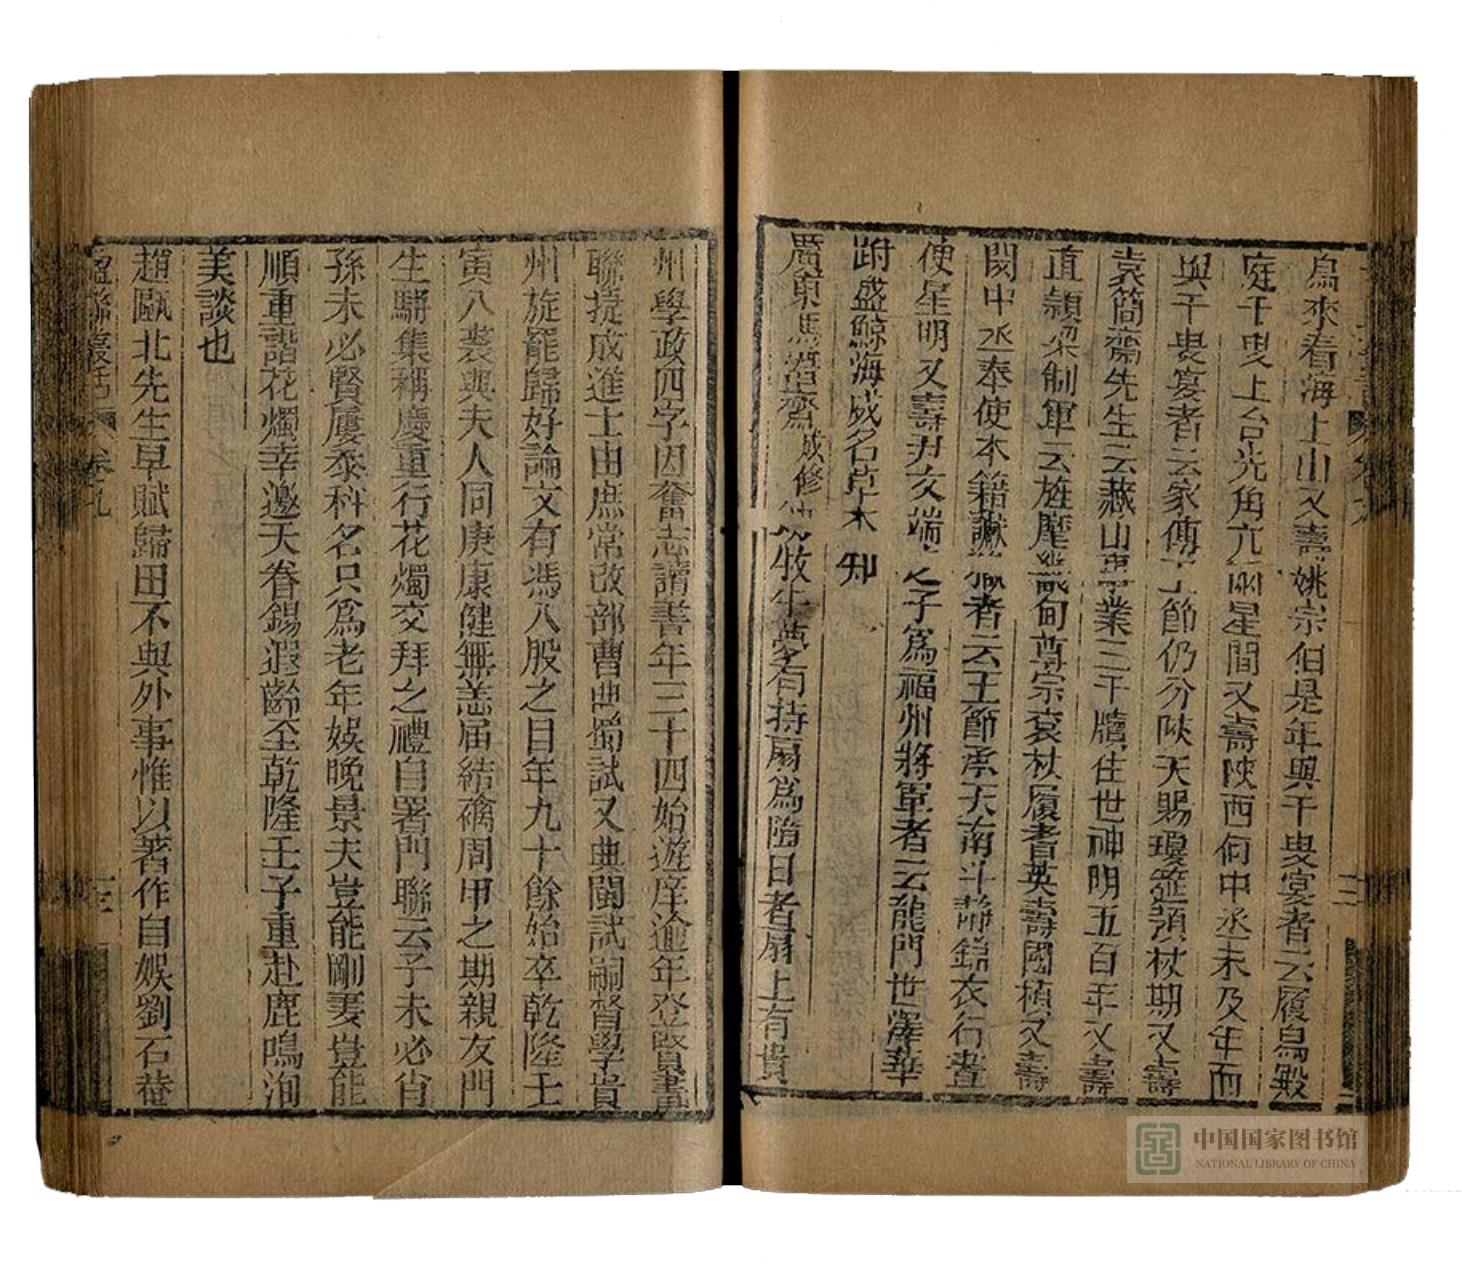 舄來看海上山又壽姚宗伯是年與千叟宴者云履舄殿
庭千叟上台光角亢兩星間又壽陜西何中丞未及年而
與千叟宴者云家傳了節仍分陜天賜瓊筵預杖期又壽
袁簡齋先生云藏山事業三千牘住世神明五百年又壽
直穎梁制軍云旌麾畿甸尊宗袞杖履耆英壽國楨又壽
閔中丞奉使本籍讞獄者云玉節承天南斗靜錦衣行晝
使星明又壽尹文端之子爲福州將軍者云龍門世澤華
跗盛鯨海威名草木知
廣東馮潛齋成修牧牛夢有持扇爲隨日者扇上有貴
州學政四字因奮志讀書年三十四始遊庠逾年登賢書
聯捷成進士由庶常改部曹典蜀試又典閩試嗣督學貴
州旋罷歸好論文有馮八股之目年九十餘始卒乾隆壬
寅八袠與夫人同庚康健無恙届結褵周甲之期親友門
生駢集稱慶重行花燭交拜之禮自署門聯云子未必肖
孫未必賢屢忝科名只爲老年娛晚景夫豈能剛妻豈能
順重諧花燭幸邀天眷錫遐齡至乾隆壬子重赴鹿鳴洵
美談也
趙甌北先生早賦歸田不與外事惟以著作自娛劉石菴
楹聯叢話 卷九 十三
中国国家图书馆
NATIONAL LIBRARY OF CHINA